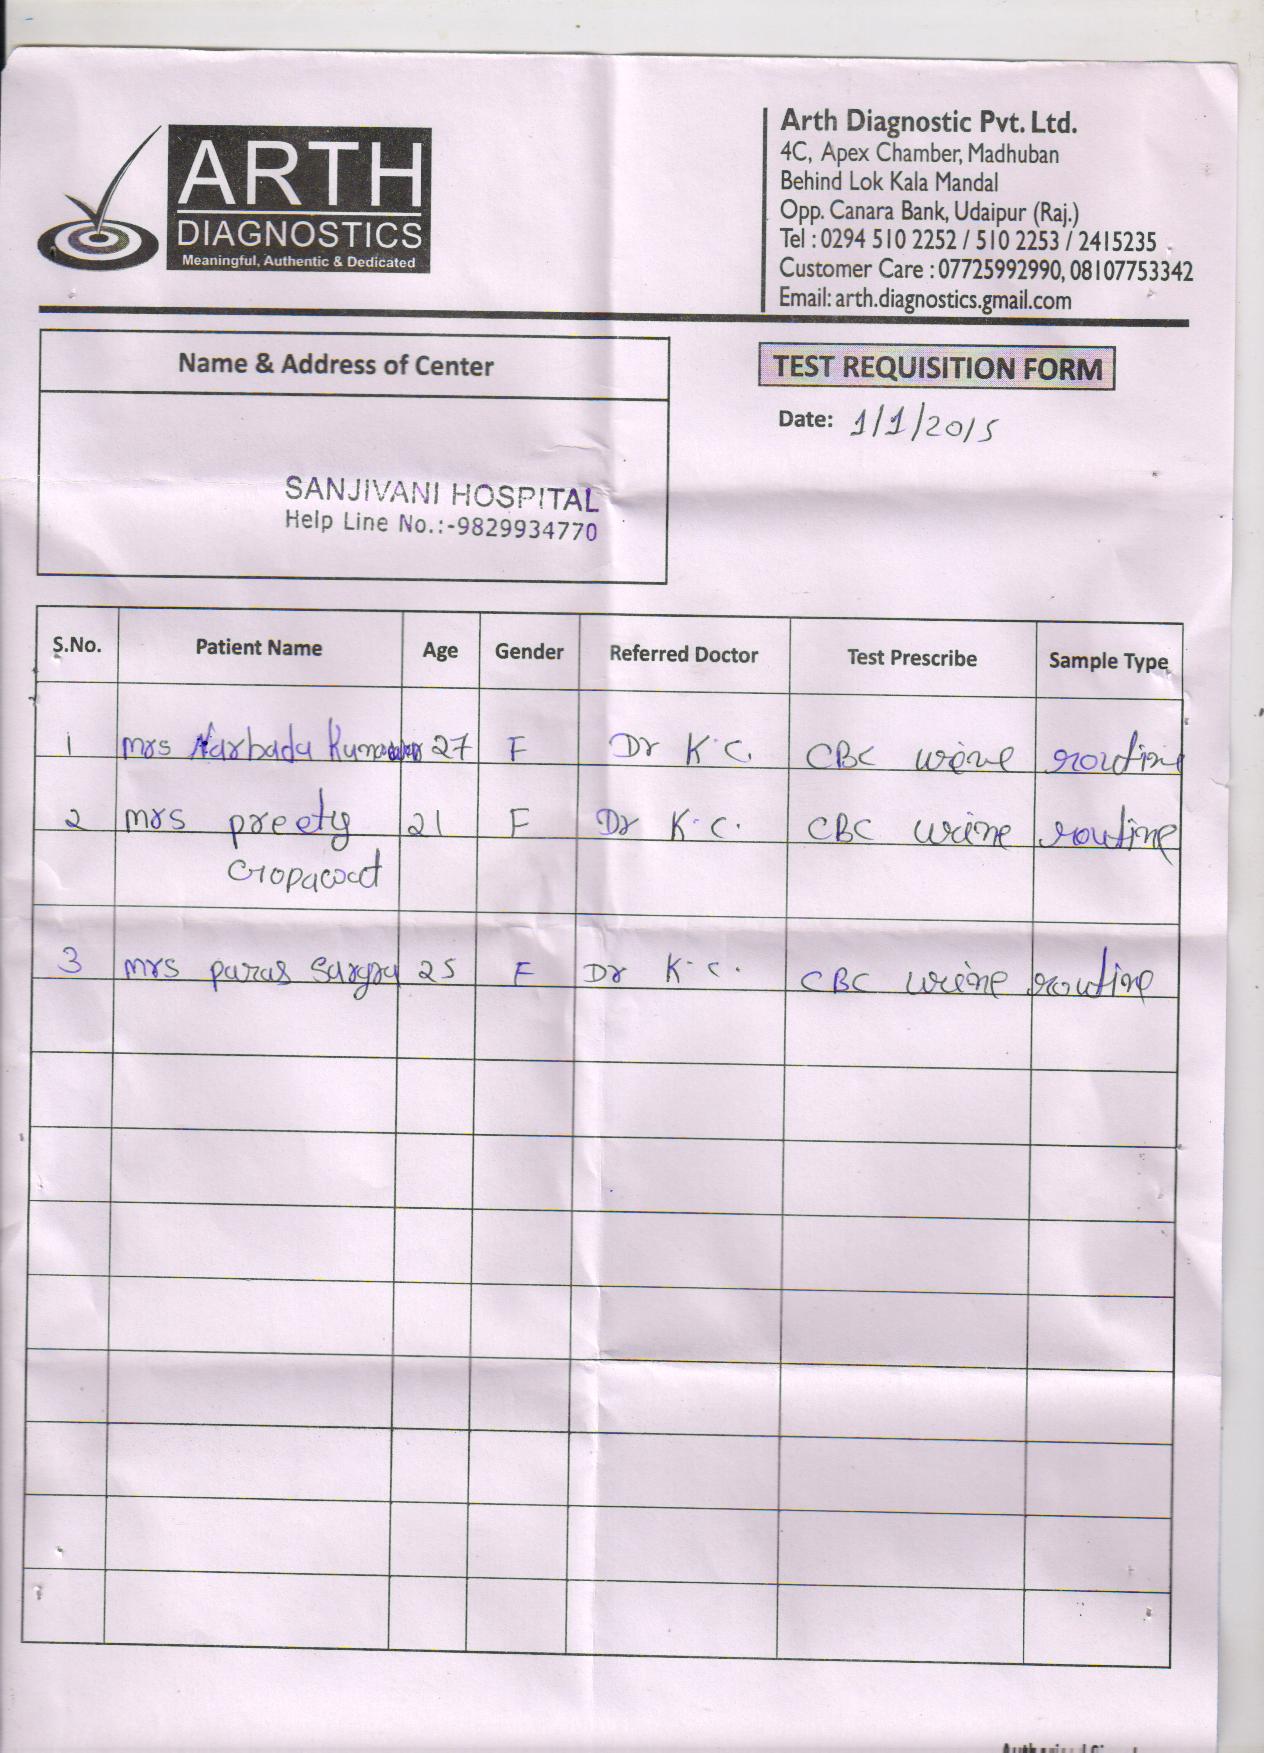 ARTH
DIAGNOSTICS
Meaningful, Authentic & Dedicated
Arth Diagnostic Pvt. Ltd.
4C, Apex Chamber, Madhuban
Behind Lok Kala Mandal
Opp. Canara Bank, Udaipur (Raj.)
Tel : 0294 510 2252 / 510 2253 / 2415235
Customer Care : 07725992990, 08107753342
Email: arth.diagnostics.gmail.com
Name & Address of Center
SANJIVANI HOSPITAL
Help Line No.:-9829934770
TEST REQUISITION FORM
Date: 1/1/2015
S.No. Patient Name Age Gender Referred Doctor Test Prescribe Sample Type
1 mrs Narbada 27 F Dr K.C. CBC urine routine
2 mrs preety 21 F Dr K.C. CBC urine routine
3 mrs paras 25 F Dr K.C. CBC urine routine